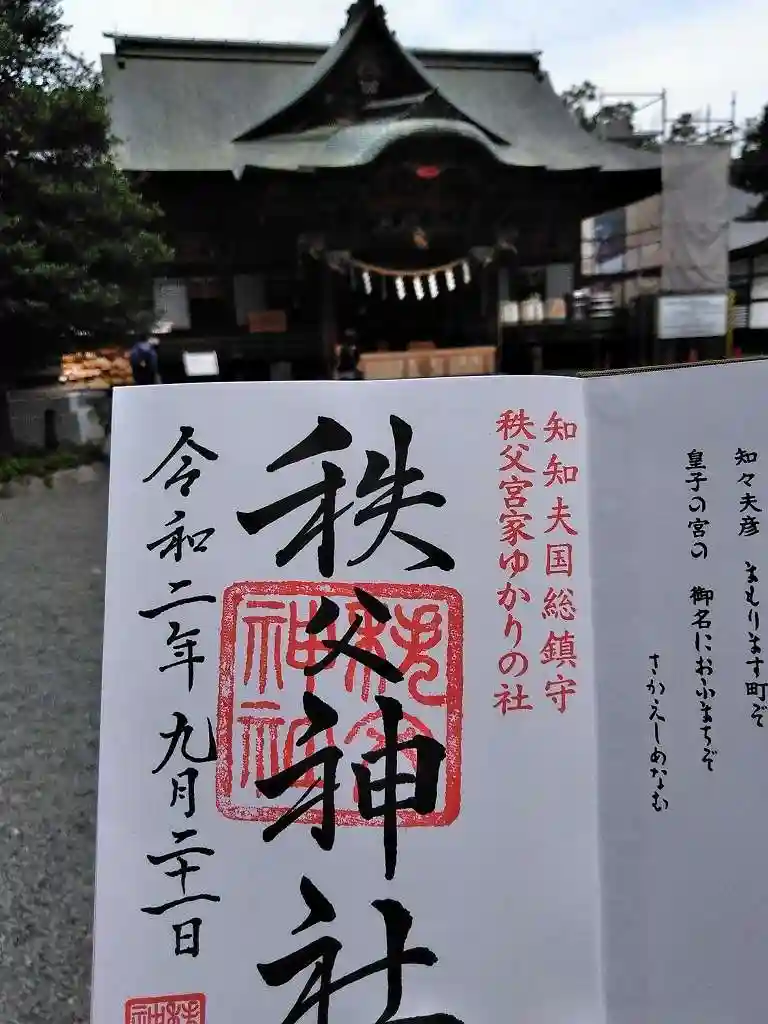 知々夫彦 まもります町ぞ
皇子の宮の 御名におふまちぞ
さかえしめなむ
知知夫国総鎮守
秩父宮家ゆかりの社
秩父神社
令和二年九月二十一日